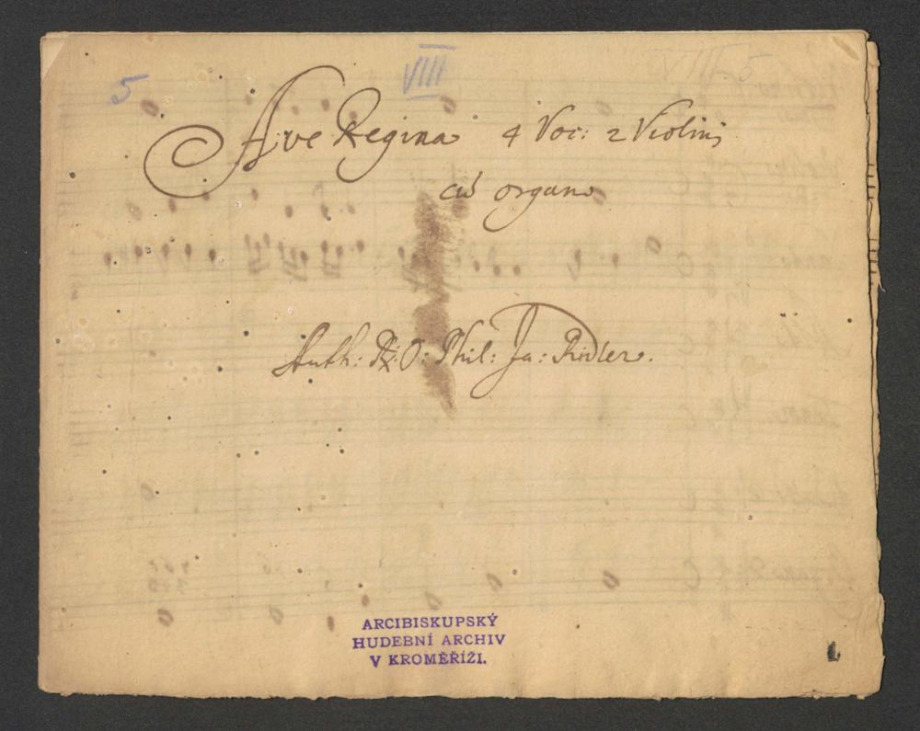 5
VIII
XIII 5
Ave Regina 4 Voc: 2 Violini
cū organo
Auth: R: O: Phil: Ja: Ridler.
ARCIBISKUPSKÝ
HUDEBNÍ ARCHIV
V KROMĚŘÍŽI.